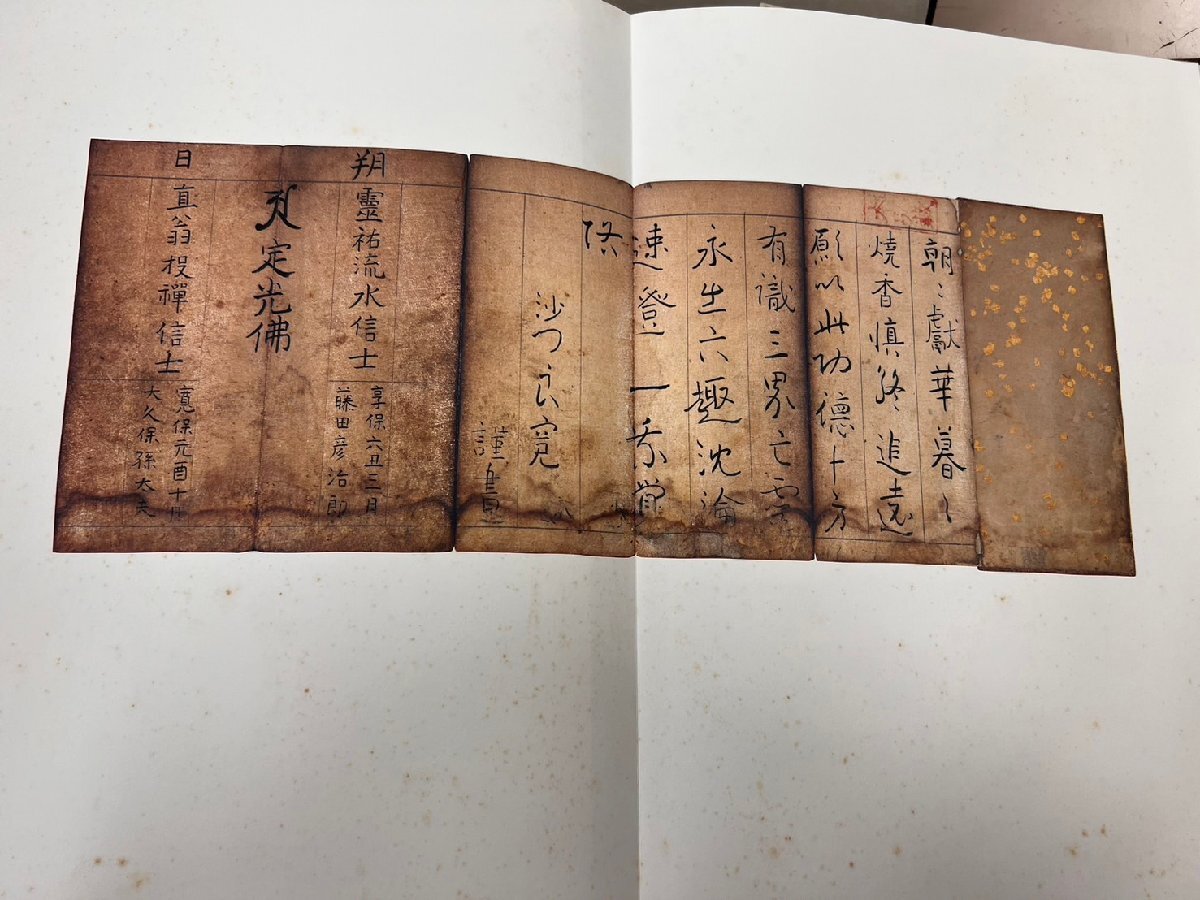 朝〻獻華暮〻
燒香慎終追遠
願以此功德十方
有識三界亡靈
永出六趣沈淪
速登一乘覺
路
沙門良寛
謹書
朔
靈祐流水信士
享保六丑三月
藤田彦治郎
定光佛
日
直翁投禪信士
寬保元酉十月
大久保孫太夫